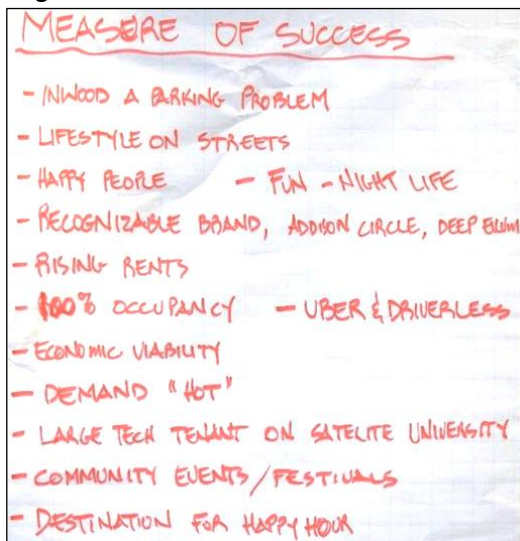 MEASURE OF SUCCESS
- INWOOD A PARKING PROBLEM
- LIFESTYLE ON STREETS
- HAPPY PEOPLE - FUN - NIGHT LIFE
- RECOGNIZABLE BRAND, ADDISON CIRCLE, DEEP ELLUM
- RISING RENTS
- 100% OCCUPANCY - UBER & DRIVERLESS
- ECONOMIC VIABILITY
- DEMAND "HOT"
- LARGE TECH TENANT ON SATELITE UNIVERSITY
- COMMUNITY EVENTS/FESTIVALS
- DESTINATION FOR HAPPY HOUR